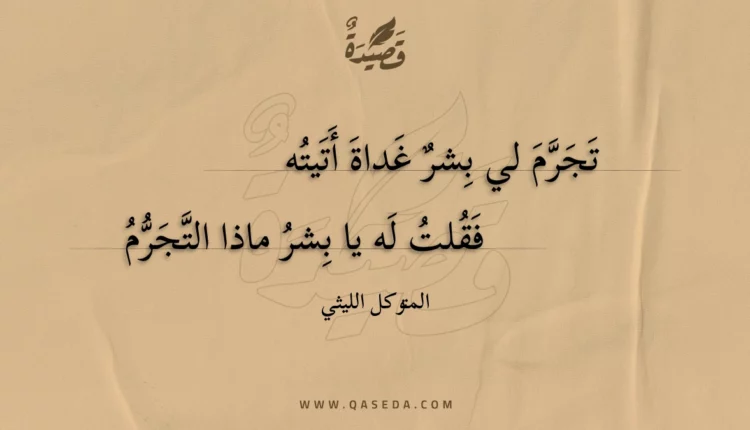 قَصِيْدَةٌ
تَجَرَّمَ لي بِشرٌ غَداةَ أَتَيتُه
فَقُلتُ لَه يا بِشرُ ماذا التَّجَرُّمُ
المتوكل الليثي
WWW.QASEDA.COM